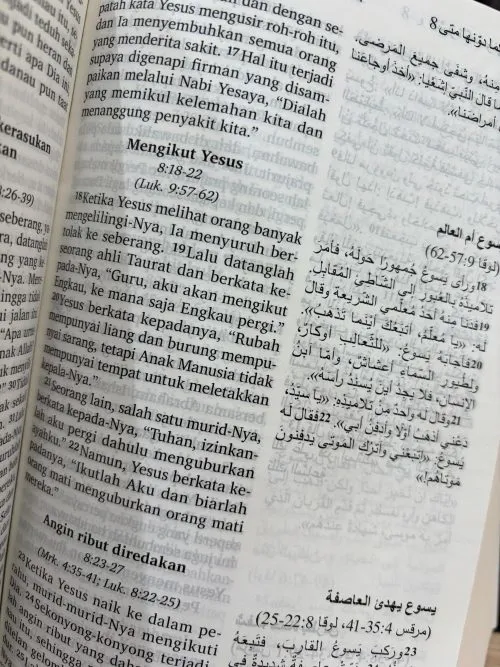 kan
8:26-39)
seberang, ya
patah kata Yesus mengusir roh-roh itu,
dan Ia menyembuhkan semua orang
yang menderita sakit. 17 Hal itu terjadi
supaya digenapi firman yang disam-
paikan melalui Nabi Yesaya, “Dialah
yang memikul kelemahan kita dan
menanggung penyakit kita.”
Mengikut Yesus
8:18-22
(Luk. 9:57-62)
18Ketika Yesus melihat orang banyak
mengelilingi-Nya, Ia menyuruh ber-
tolak ke seberang. 19 Lalu datanglah
seorang ahli Taurat dan berkata ke-
pada-Nya, “Guru, aku akan mengikut
Engkau, ke mana saja Engkau pergi.”
20Yesus berkata kepadanya, “Rubah
mempunyai liang dan burung mempu-
nyai sarang, tetapi Anak Manusia tidak
mempunyai tempat untuk meletakkan
kepala-Nya.”
21Seorang lain, salah satu murid-Nya,
berkata kepada-Nya, “Tuhan, izinkan-
lah aku pergi dahulu menguburkan
ayahku.” 22 Namun, Yesus berkata ke-
padanya, “Ikutlah Aku dan biarlah
orang mati menguburkan orang mati
mereka.”
Angin ribut diredakan
8:23-27
(Mrk. 4:35-41; Luk. 8:22-25)
23Ketika Yesus naik ke dalam pe-
rahu, murid-murid-Nya mengikuti
Dia. 24 Sekonyong-konyong terjadi
angin ribut yang
itu, sehingga
كما دونها متى 8
منه، وشفى جميع المرضى،
ما قال النبي إشعيا: «أخذ أوجاعنا
أمراضنا».
يسوع أم العالم
(لوقا 57:9-62)
18ورأى يسوع جمهورا حوله، فأمر
تلاميذه بالعبور إلى الشاطئ المقابل.
19فدنا منه أحد معلمي الشريعة وقال
له: «يا معلم، أتبعك أينما تذهب».
20فأجابه يسوع: «للثعالب أوكار،
ولطيور السماء أعشاش، وأما ابن
الإنسان، فلا يجد أين يسند رأسه».
21وقال له واحد من تلاميذه: «يا سيد،
دعني أذهب أولا وأدفن أبي». 22فقال له
يسوع: «اتبعني واترك الموتى يدفنون
موتاهم!»
يسوع يهدئ العاصفة
(مرقس 35:4-41، لوقا 22:8-25)
23وركب يسوع القارب، فتبعه